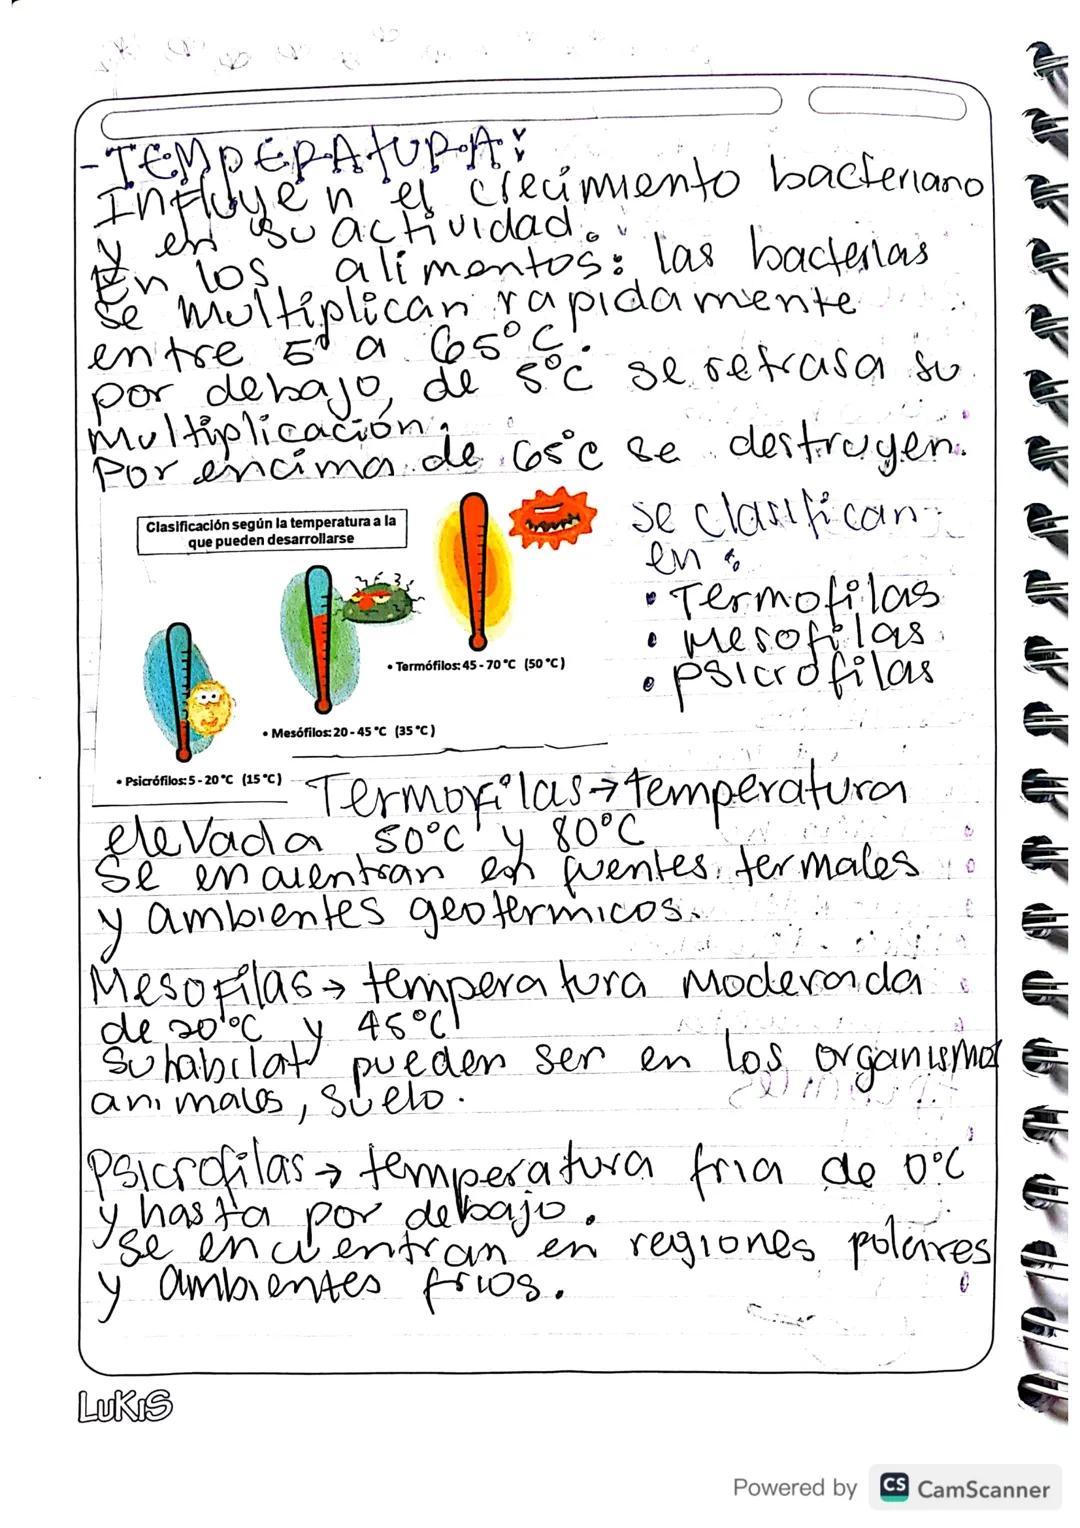 -TEMPERATURA:
Influye n el crecimiento bacteriano
y en su actividad.
En los alimentos: las bacterias
se multiplican rapidamente
entre 5° a 65°C.
por debajo, de 5°C se retrasa su
multiplicación.
Por encima de 65°C se destruyen.
Clasificación según la temperatura a la
que pueden desarrollarse
• Termófilos: 45 - 70 °C (50 °C)
• Mesófilos: 20 - 45 °C (35 °C)
• Psicrófilos: 5 - 20 °C (15 °C)
se clasifican
en:
• Termofilas
• Mesofilas
• psicrofilas
Termofilas → temperatura
elevada 50°C y 80°C
Se encuentran en fuentes termales
y ambientes geotermicos.
Mesofilas → temperatura moderada
de 20°C y 45°C
Su habilat pueden ser en los organismos
animales, suelo.
Psicrofilas → temperatura fria de 0°C
y hasta por debajo.
Se encuentran en regiones polaires
y ambientes frios.
LUKIS
Powered by CS CamScanner